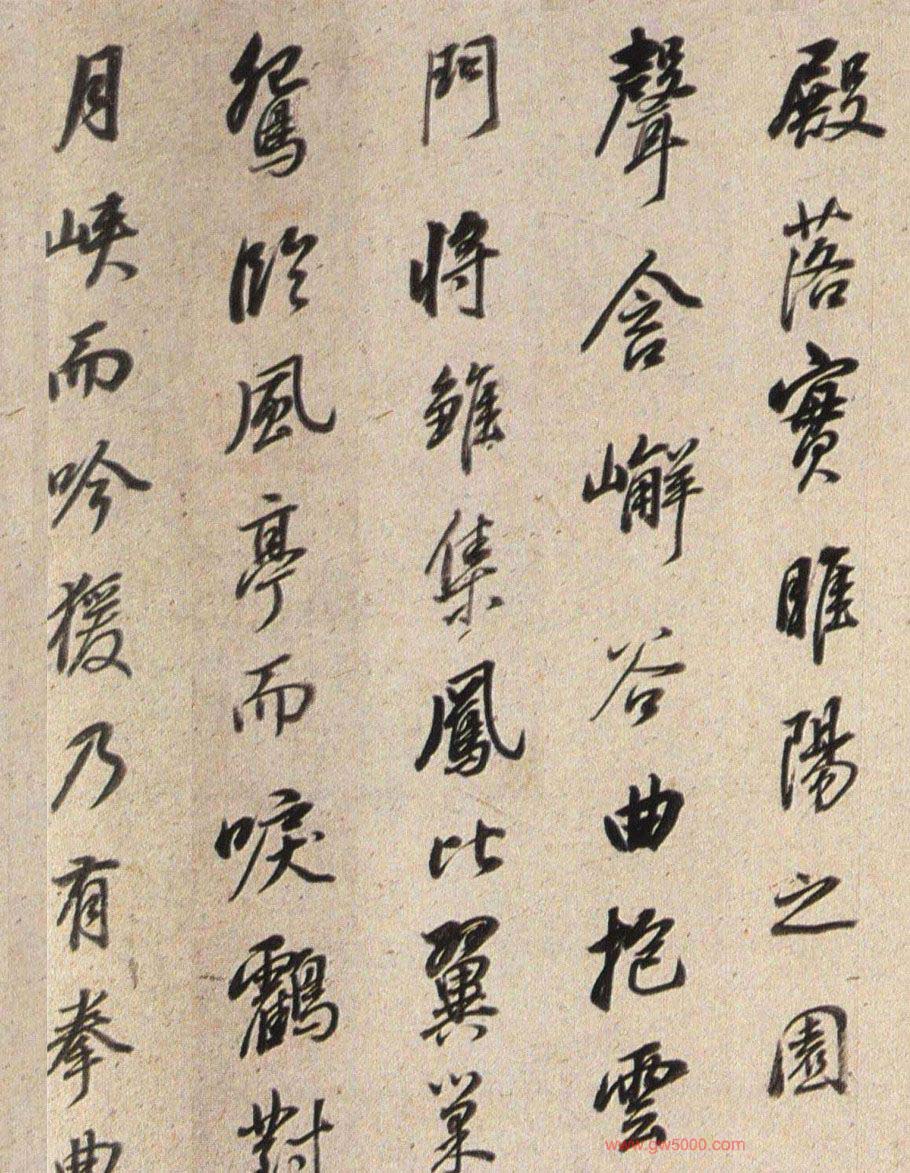 殿落實睢陽之園
聲含嶰谷曲抱雲
門將雛集鳳比翼巢
鴛臨風亭而唳鶴對
月峽而吟猨乃有拳曲
www.gw5000.com